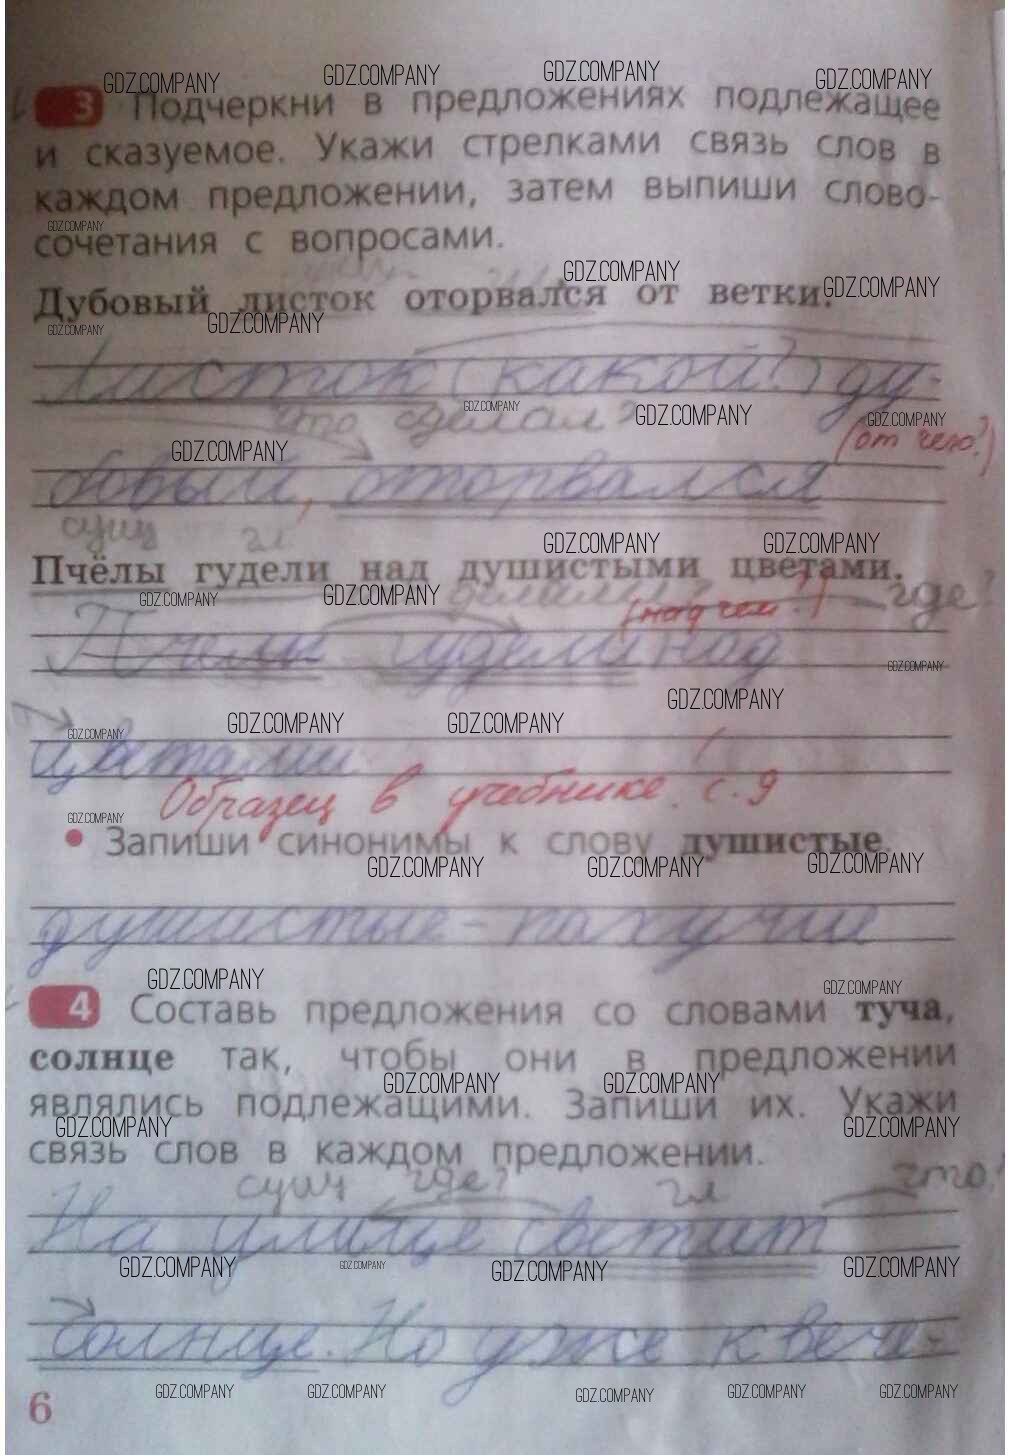 3 Подчеркни в предложениях подлежащее
и сказуемое. Укажи стрелками связь слов в
каждом предложении, затем выпиши слово-
сочетания с вопросами.
Дубовый листок оторвался от ветки.
Листок (какой?) ду-
что сделал?
(от чего?)
бовый, оторвался
сущ гл
Пчёлы гудели над душистыми цветами.
(над чем?) где?
Пчелы гудели над
цветами
Образец в учебнике с. 9
• Запиши синонимы к слову душистые.
душистые - пахучие
4 Составь предложения со словами туча,
солнце так, чтобы они в предложении
являлись подлежащими. Запиши их. Укажи
связь слов в каждом предложении.
сущ где? гл что?
На улице светит
солнце. Но уже к вече-
6
GDZ.COMPANY